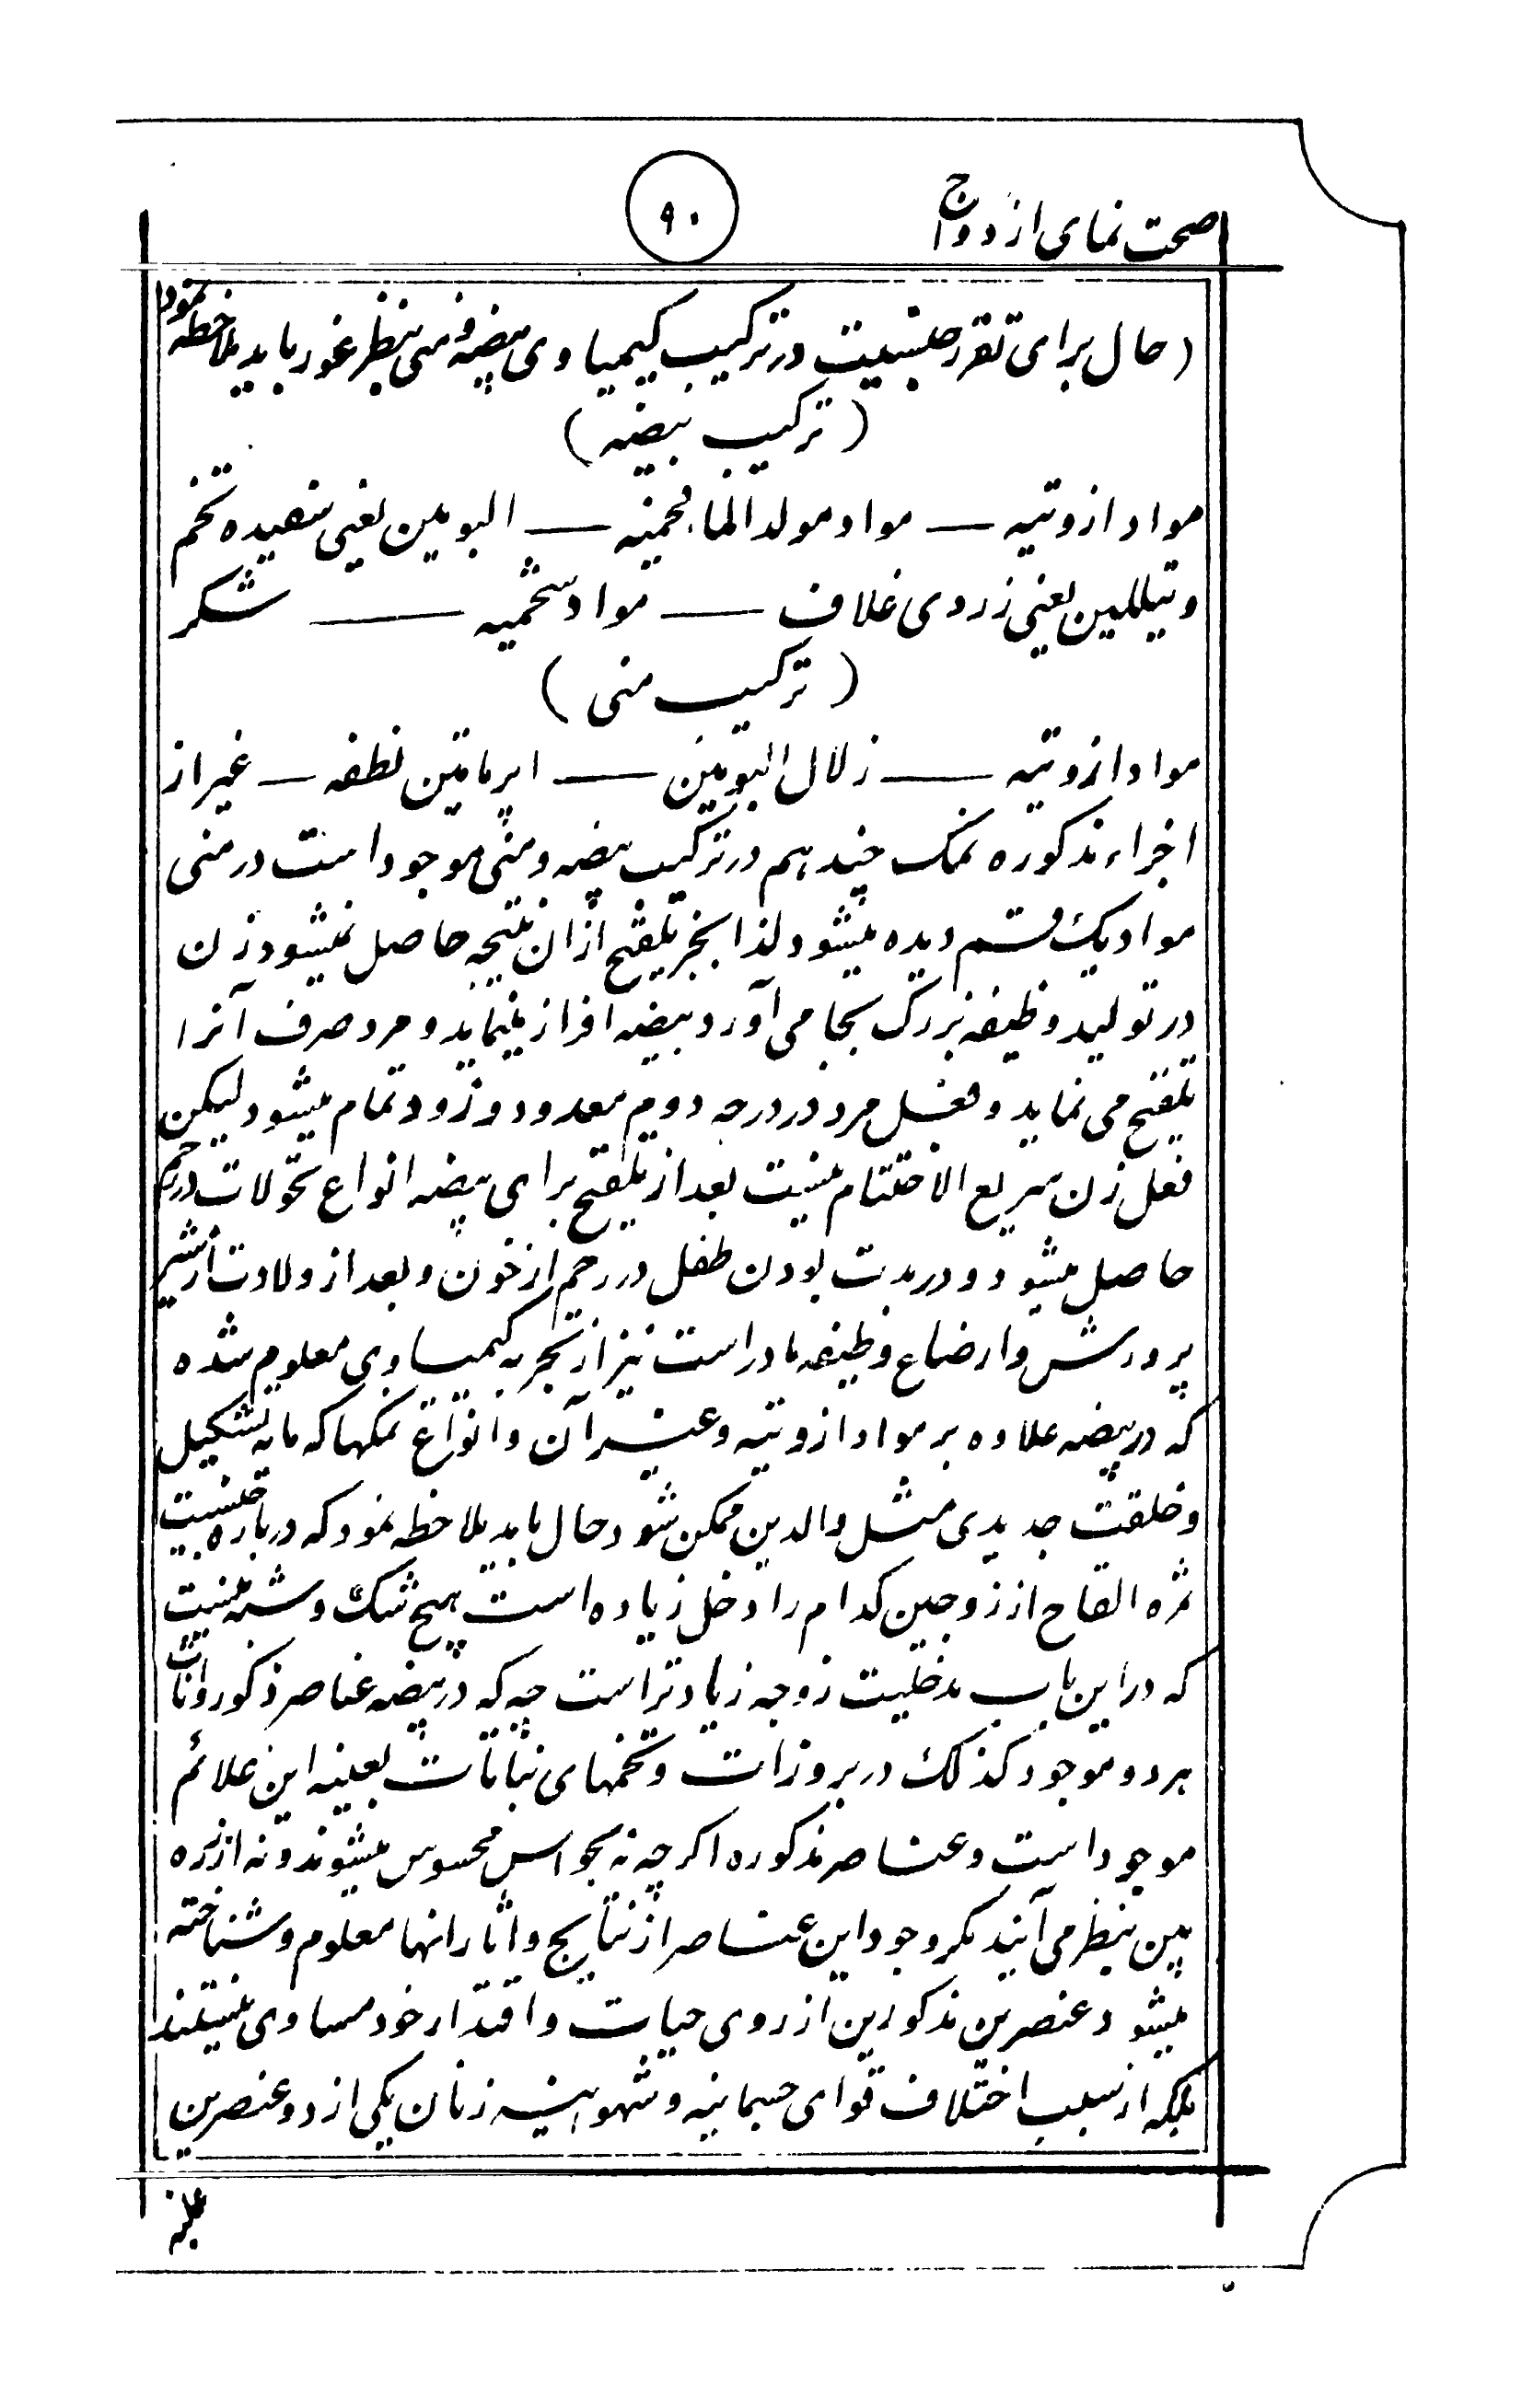 صحت نمای ازدواج
۹۰
(حال برای تقرر جنسیت در ترکیب کیمیاوی بیضه و منی بنظر غور باید ملاحظه نمود)
(ترکیب بیضه)
مواد ازوتیه — مواد مولد الماء فحمیه — البومین یعنی سفیده تخم
ویتللین یعنی زردی غلاف — مواد شحمیه — شکر
(ترکیب منی)
مواد ازوتیه — زلال البومین — اپرماتین نطفه — غیر از
اجزاء مذکوره نمک چند هم در ترکیب بیضه و منی موجود است در منی
مواد یک قسم دیده میشود لذا بجز تلقیح ازان نتیجه حاصل نمیشود زن
در تولید وظیفه بزرگ بجا می آورد بیضه افراز مینماید و مرد صرف آنرا
تلقیح می نماید و فعل مرد در درجه دویم معدود و زود تمام میشود لیکن
فعل زن سریع الاختتام نیست بعد از تلقیح برای بیضه انواع تحولات در رحم
حاصل میشود و در مدت بودن طفل در رحم از خون و بعد از ولادت از شیر
پرورش و ارضاع وظیفه مادر است نیز از تجربه کیمیاوی معلوم شده
که در بیضه علاوه بر مواد ازوتیه و غیر آن و انواع نمکها که مایه تشکیل
و خلقت جدیدی مثل والدین ممکن شود حال باید ملاحظه نمود که درباره جنسیت
ثمره القاح از زوجین کدام را دخل زیاده است هیچ شک و شبه نیست
که در این باب مدخلیت زوجه زیادتر است چه که در بیضه عناصر ذکور و اناث
هر دو موجود کذلک در بروزات و تخمهای نباتات بعینه این علائم
موجود است و عناصر مذکوره اکرچه نه بحواس محسوس میشوند و نه از ذره
بین بنظر می آیند مکر وجود این عناصر از نتایج و اثار انها معلوم و شناخته
میشود عنصرین مذکورین از روی حیات و اقتدار خود مساوی نیستند
بلکه از سبب اختلاف قوای جسمانیه و شهوانیه زنان یکی از دو عنصرین